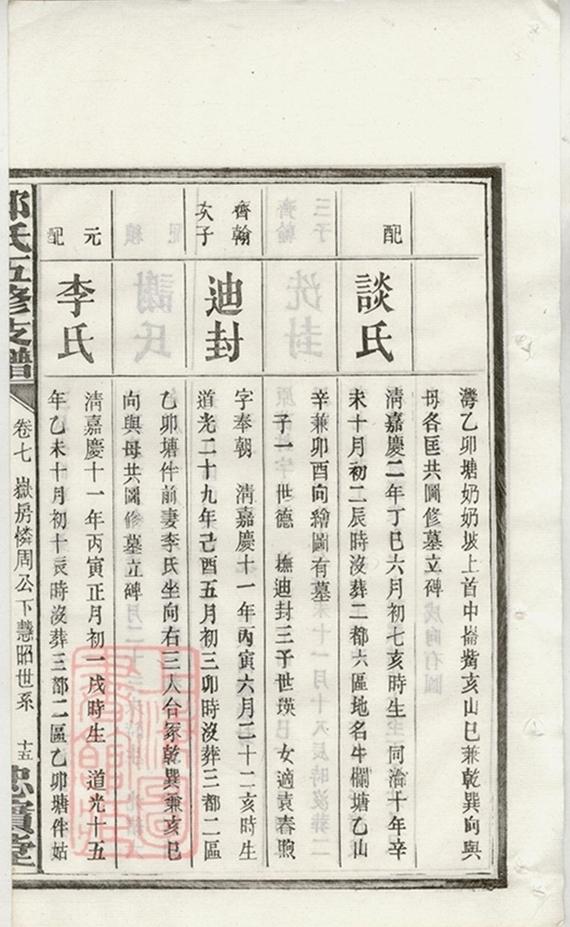 灣乙卯塘奶奶坡上首中崙觜亥山巳兼乾巽向與
母各匡共圖修墓立碑
配
談氏
清嘉慶二年丁巳六月初七亥時生 同治十年辛
未十月初二辰時沒葬二都六區地名牛欄塘乙山
辛兼卯酉向繪圖有墓
子一 世德 撫迪封三子世瑛 女適袁春煦
齊翰
次子
迪封
字奉朝 清嘉慶十一年丙寅六月二十二亥時生
道光二十九年己酉五月初三卯時沒葬三都二區
乙卯塘件前妻李氏坐向右三人合冢乾巽兼亥巳
向與母共圖修墓立碑
元
配
李氏
清嘉慶十一年丙寅正月初一戌時生 道光十五
年乙未十月初十辰時沒葬三都二區乙卯塘件姑
氏五修支譜
卷七 嶽房憐周公下慧昭世系
十五
忠實堂